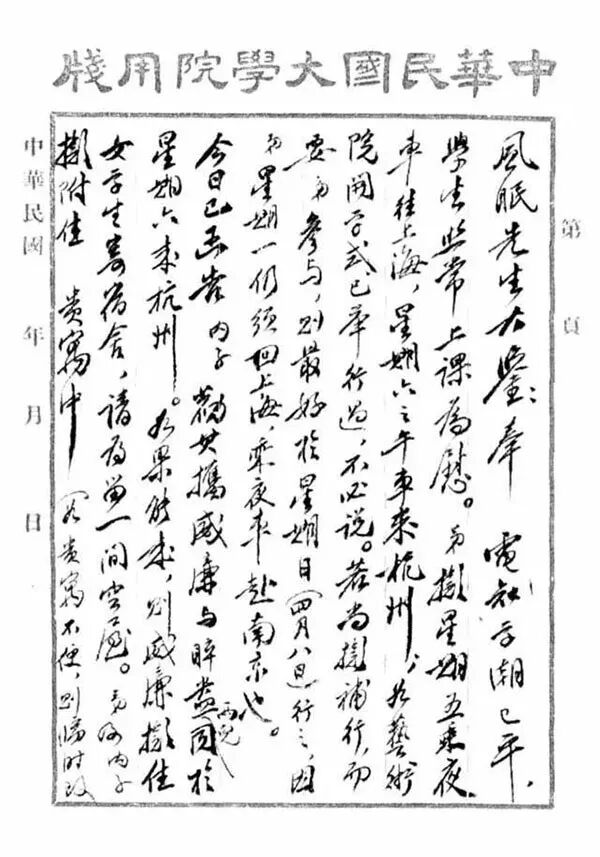 中華民國大學院用牋
第 頁
風眠先生大鑒：奉 電知学潮已平，
學生照常上課為慰。弟擬星期五乘夜
車往上海，星期六之午車來杭州，如藝術
院開学式已舉行過，不必說。若尚擬補行，而
要弟參与，則最好於星期日（四月八日）行之，因
弟星期一仍須回上海，乘夜車赴南京也。
今日已函告內子勸其攜威廉与睟盎兩兒同於
星期六來杭州。如果能來，則威廉擬住
女学生寄宿舍，請為留一間空屋。弟与內子
擬附住 貴寓中（若貴寓不便，則臨時改
中華民國 年 月 日